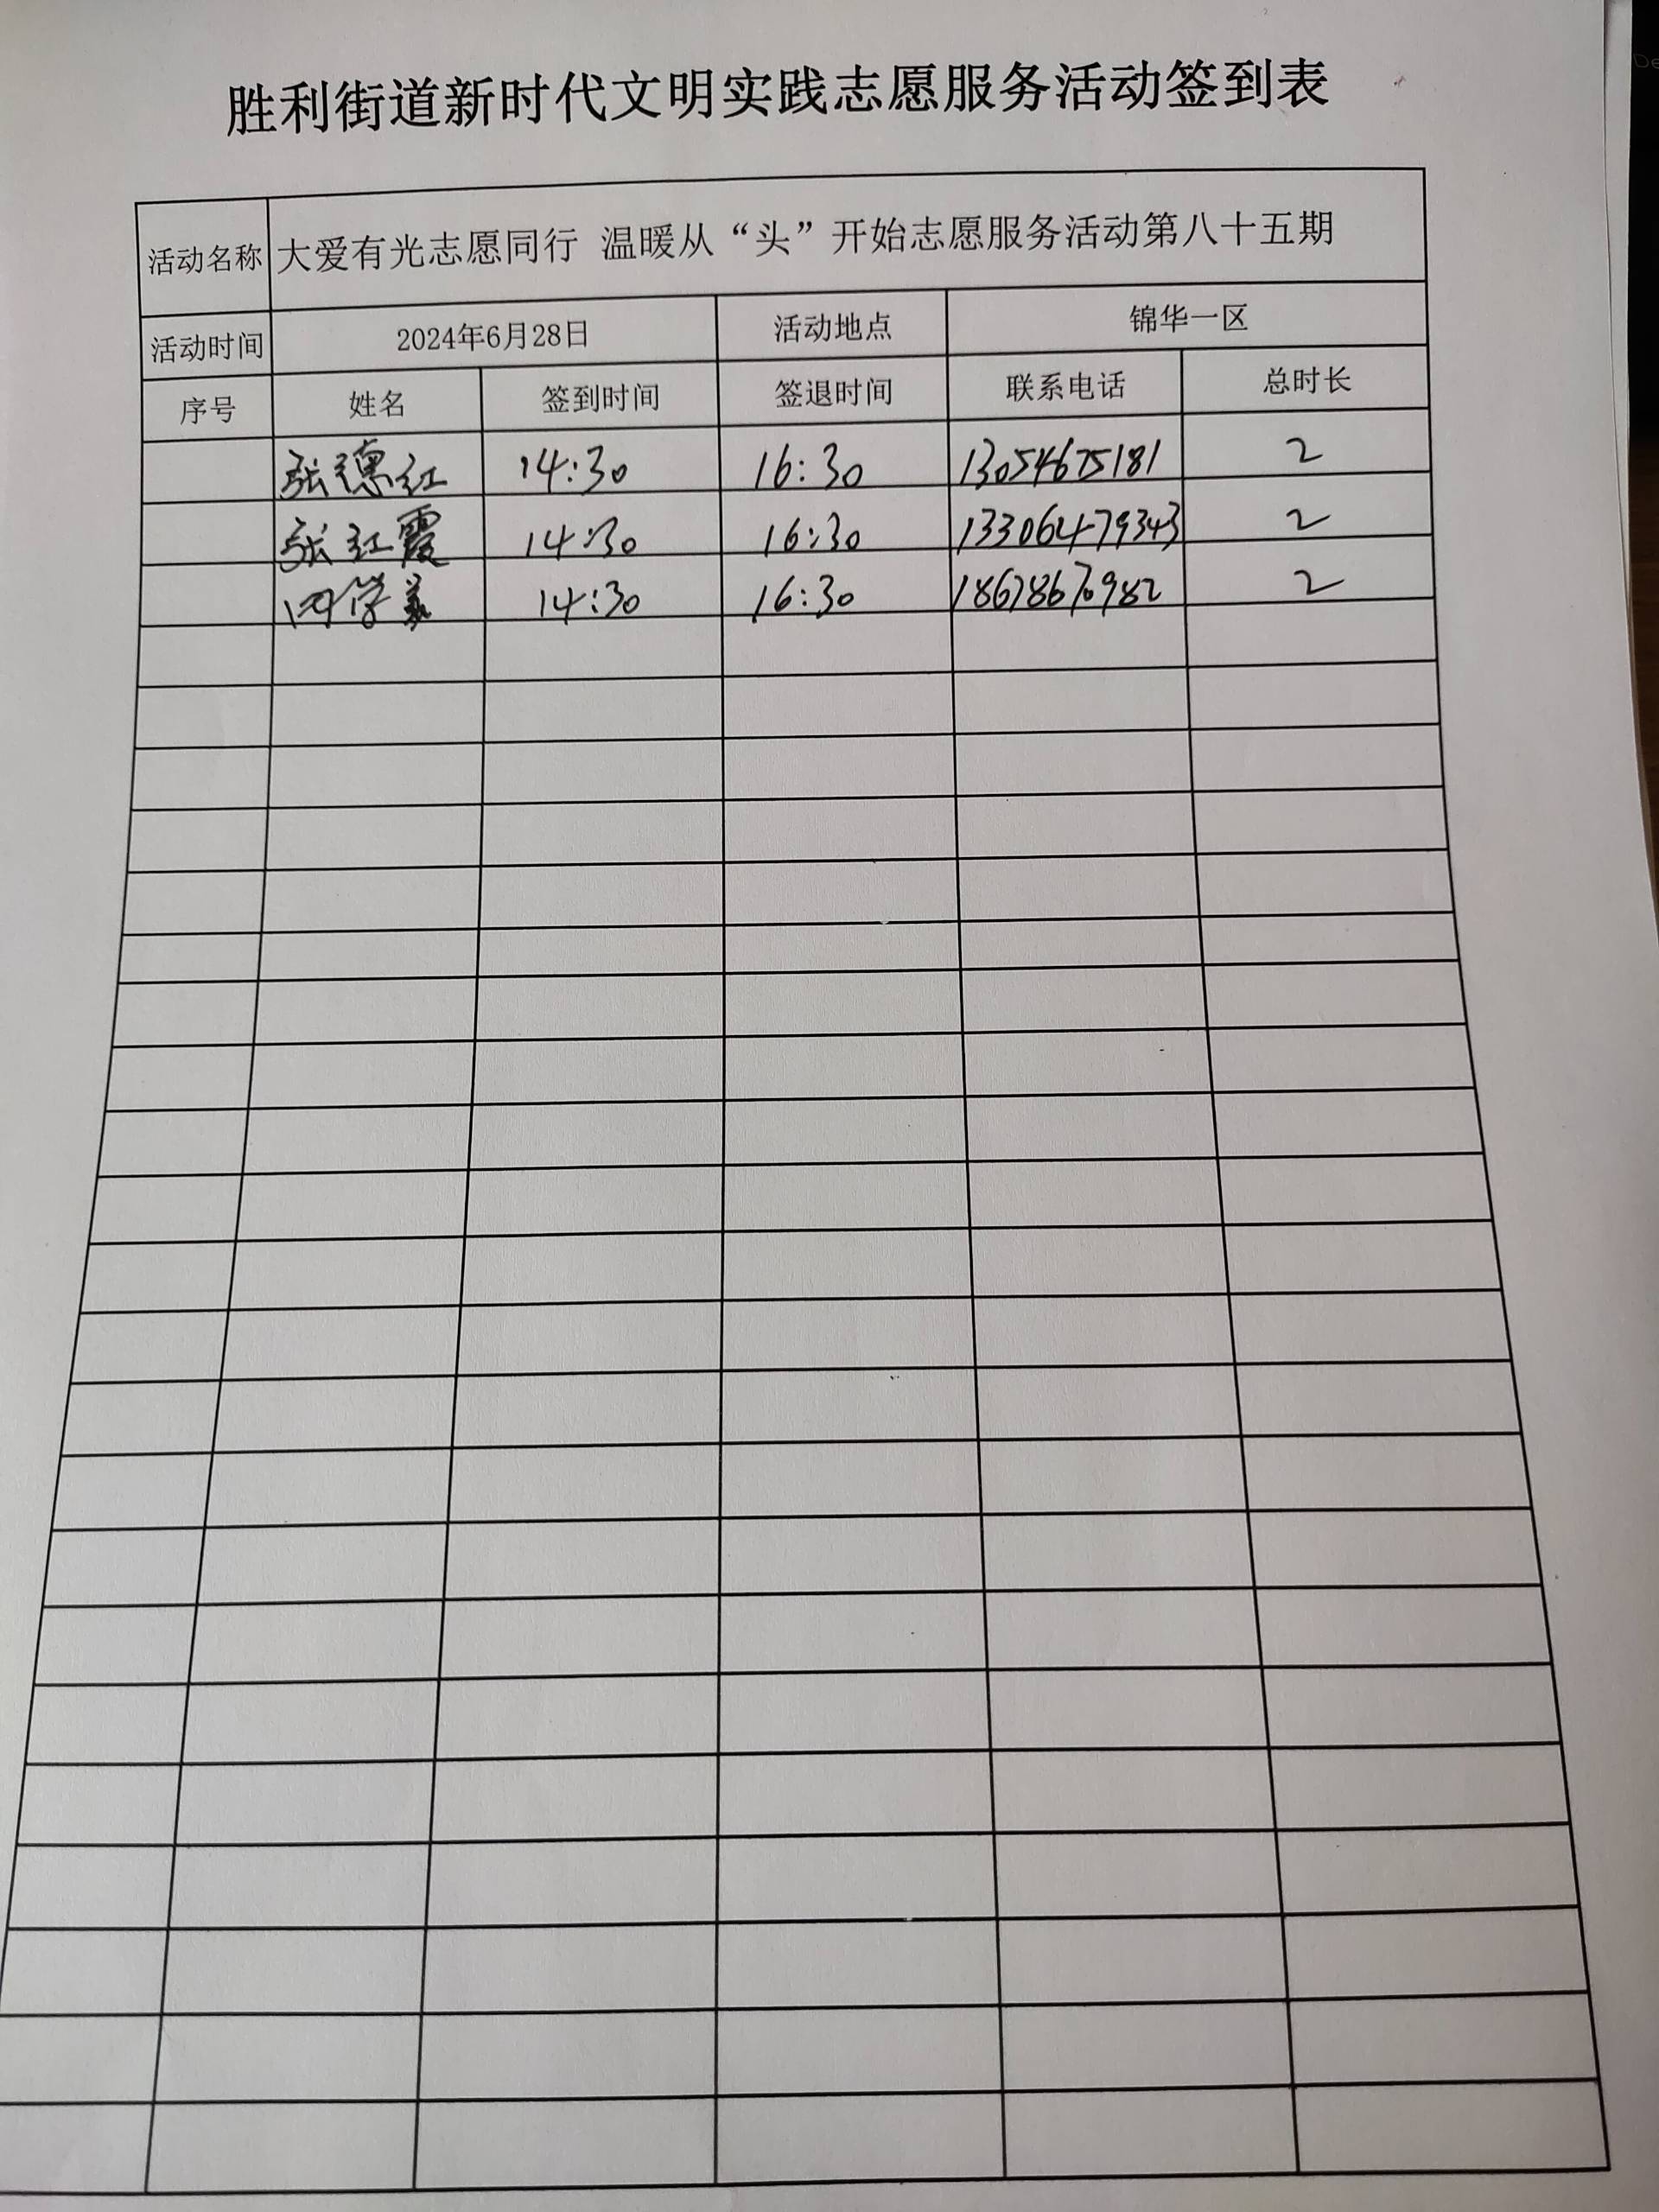 胜利街道新时代文明实践志愿服务活动签到表
活动名称 大爱有光志愿同行 温暖从“头”开始志愿服务活动第八十五期
活动时间 2024年6月28日 活动地点 锦华一区
序号 姓名 签到时间 签退时间 联系电话 总时长
张德红 14:30 16:30 13054675181 2
张红霞 14:30 16:30 13306479343 2
14:30 16:30 2